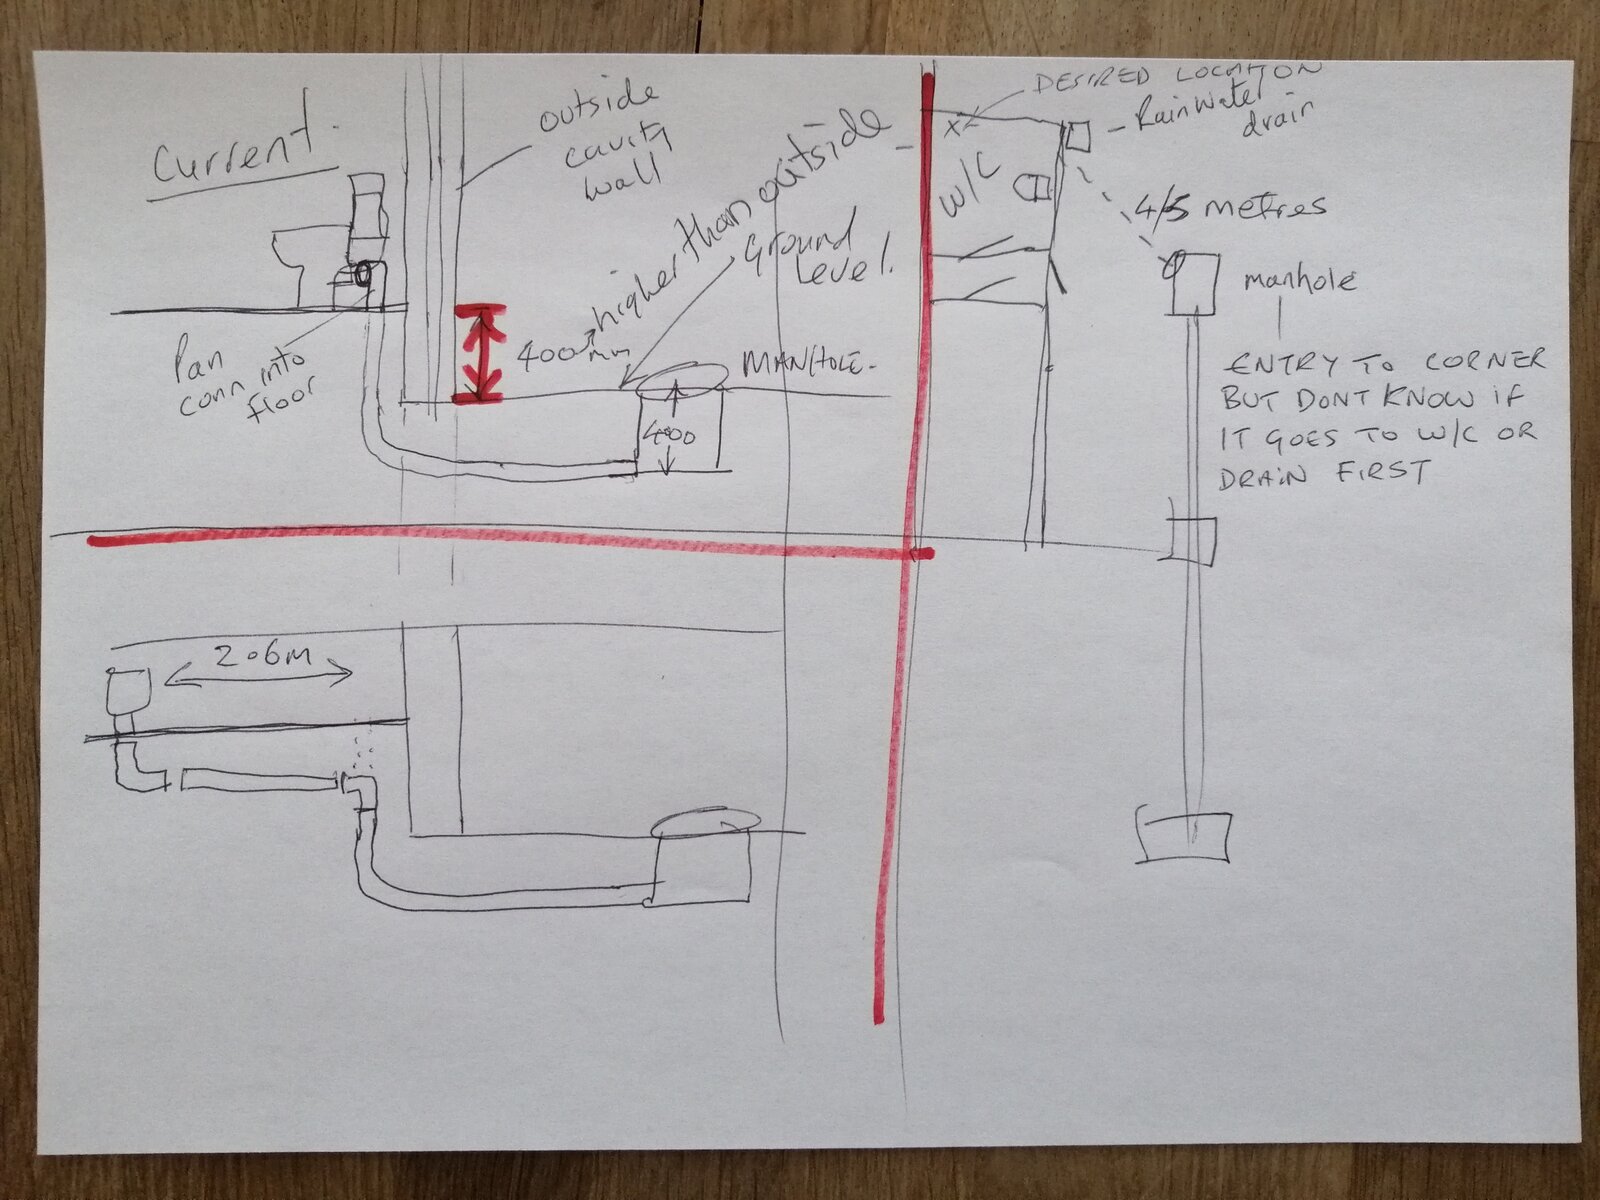 Current.
outside
cavity
wall
400mm higher than outside
Ground
Level.
Pan
conn into
floor
MANHOLE.
400
DESIRED LOCATION
X
Rainwater
drain
W/C
4/5 metres
manhole
ENTRY TO CORNER
BUT DONT KNOW IF
IT GOES TO W/C OR
DRAIN FIRST
2.6M